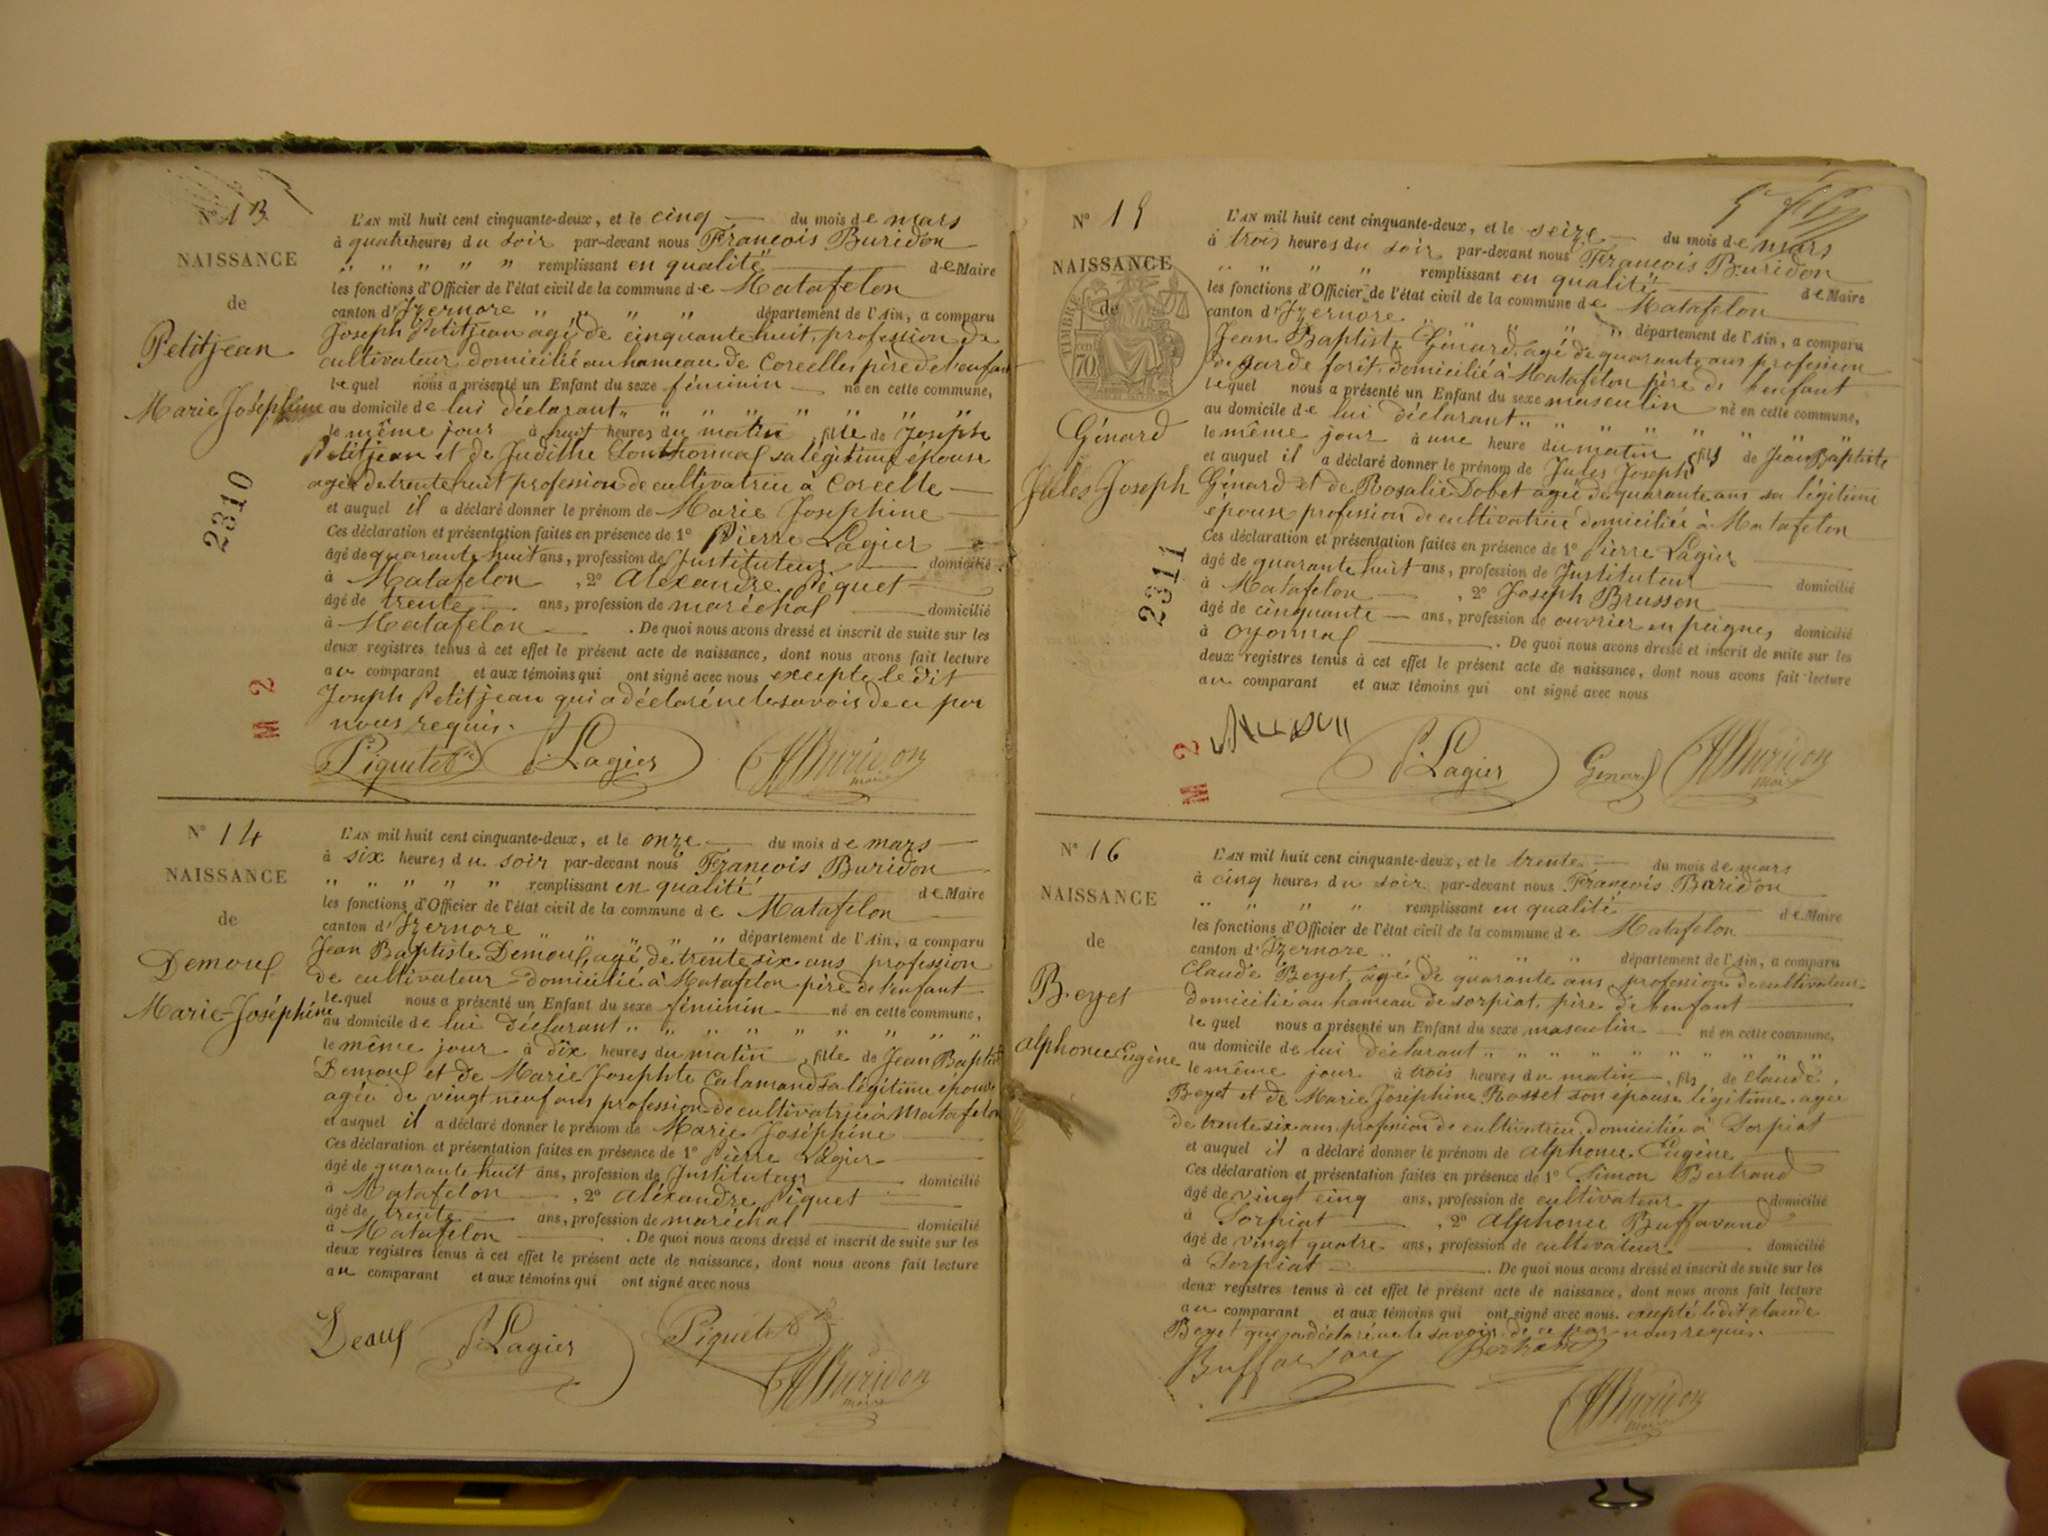 N° 13
NAISSANCE
de
Petitjean
Marie Joséphine
2310
M 2
L'AN mil huit cent cinquante-deux, et le cinq du mois de mars
à quatre heures du soir par-devant nous François Buridon
" " " " " remplissant en qualité de Maire
les fonctions d'Officier de l'état civil de la commune de Matafelon
canton d'Izernore " " " " département de l'Ain, a comparu
Joseph Petitjean agé de cinquante huit, profession de
cultivateur domicilié au hameau de Corcelles père de l'enfant
lequel nous a présenté un Enfant du sexe féminin né en cette commune,
au domicile de lui déclarant " " " " " " "
le même jour à huit heures du matin, fille de Joseph
Petitjean et de Judithe sa légitime epouse
agée de trente huit profession de cultivatrice à Corcelle
et auquel il a déclaré donner le prénom de Marie Josephine
Ces déclaration et présentation faites en présence de 1° Pierre Lagier
âgé de quarante huit ans, profession de Instituteur domicilié
à Matafelon, 2° Alexandre Piquet
âgé de trente ans, profession de maréchal domicilié
à Matafelon. De quoi nous avons dressé et inscrit de suite sur les
deux registres tenus à cet effet le présent acte de naissance, dont nous avons fait lecture
au comparant et aux témoins qui ont signé avec nous excepté ledit
Joseph Petitjean qui a déclaré ne le savoir de ce par
nous requis.
Piquet P. Lagier Buridon
maire
N° 14
NAISSANCE
de
Demouf
Marie-Joséphine
L'AN mil huit cent cinquante-deux, et le onze du mois de mars
à six heures du soir par-devant nous François Buridon
" " " " " remplissant en qualité de Maire
les fonctions d'Officier de l'état civil de la commune de Matafelon
canton d'Izernore " " " " département de l'Ain, a comparu
Jean Baptiste Demouf, agé de trente six ans profession
de cultivateur domicilié à Matafelon père de l'enfant
lequel nous a présenté un Enfant du sexe féminin né en cette commune,
au domicile de lui déclarant " " " " " " " "
le même jour à dix heures du matin, fille de Jean Baptiste
Demouf et de Marie Josephte Calamand sa légitime epouse
agée de vingt neuf ans profession de cultivatrice à Matafelon
et auquel il a déclaré donner le prénom de Marie Joséphine
Ces déclaration et présentation faites en présence de 1° Pierre Lagier
âgé de quarante huit ans, profession de Instituteur domicilié
à Matafelon, 2° Aléxandre Piquet
âgé de trente ans, profession de maréchal domicilié
à Matafelon. De quoi nous avons dressé et inscrit de suite sur les
deux registres tenus à cet effet le présent acte de naissance, dont nous avons fait lecture
au comparant et aux témoins qui ont signé avec nous
P. Lagier Piquet
Buridon
maire
N° 15
NAISSANCE
de
TIMBRE
70
Génard
Jules Joseph
2311
M 2
L'AN mil huit cent cinquante-deux, et le seize du mois de mars
à trois heures du soir par-devant nous François Buridon
" " " " remplissant en qualité de Maire
les fonctions d'Officier de l'état civil de la commune de Matafelon
canton d'Izernore " " " " département de l'Ain, a comparu
Jean Baptiste Génard, agé de quarante ans profession
de garde forêt, domicilié à Matafelon père de l'enfant
lequel nous a présenté un Enfant du sexe masculin né en cette commune,
au domicile de lui déclarant " " " " " " "
le même jour à une heure du matin, fils de Jean Baptiste
et auquel il a déclaré donner le prénom de Jules Joseph
Génard et de Rosalie Dobet agée de quarante ans sa légitime
épouse profession de cultivatrice domiciliée à Matafelon
Ces déclaration et présentation faites en présence de 1° Pierre Lagier
âgé de quarante huit ans, profession de Instituteur domicilié
à Matafelon, 2° Joseph Brusson
âgé de cinquante ans, profession de ouvrier en peignes domicilié
à Oyonnas. De quoi nous avons dressé et inscrit de suite sur les
deux registres tenus à cet effet le présent acte de naissance, dont nous avons fait lecture
au comparant et aux témoins qui ont signé avec nous
P. Lagier Génard Buridon
maire
N° 16
NAISSANCE
de
Beyet
alphonse Eugène
L'AN mil huit cent cinquante-deux, et le trente du mois de mars
à cinq heures du soir par-devant nous François Buridon
" " " " remplissant en qualité de Maire
les fonctions d'Officier de l'état civil de la commune de Matafelon
canton d'Izernore " " " " département de l'Ain, a comparu
Claude Beyet, agé de quarante ans profession de cultivateur
domicilié au hameau de sorpiat, père de l'enfant
lequel nous a présenté un Enfant du sexe masculin né en cette commune,
au domicile de lui déclarant " " " " " " " "
le même jour à trois heures du matin, fils de Claude
Beyet et de Marie Joséphine Rosset son epouse légitime agée
de trente six ans profession de cultivatrice domiciliée à Sorpiat
et auquel il a déclaré donner le prénom de alphonse Eugène
Ces déclaration et présentation faites en présence de 1° Simon Bertrand
âgé de vingt cinq ans, profession de cultivateur domicilié
à Sorpiat, 2° alphonse Buffavand
âgé de vingt quatre ans, profession de cultivateur domicilié
à Sorpiat. De quoi nous avons dressé et inscrit de suite sur les
deux registres tenus à cet effet le présent acte de naissance, dont nous avons fait lecture
au comparant et aux témoins qui ont signé avec nous excepté ledit claude
Beyet qui a déclaré ne le savoir de ce par nous requis.
Buffavand Bertrand
Buridon
maire